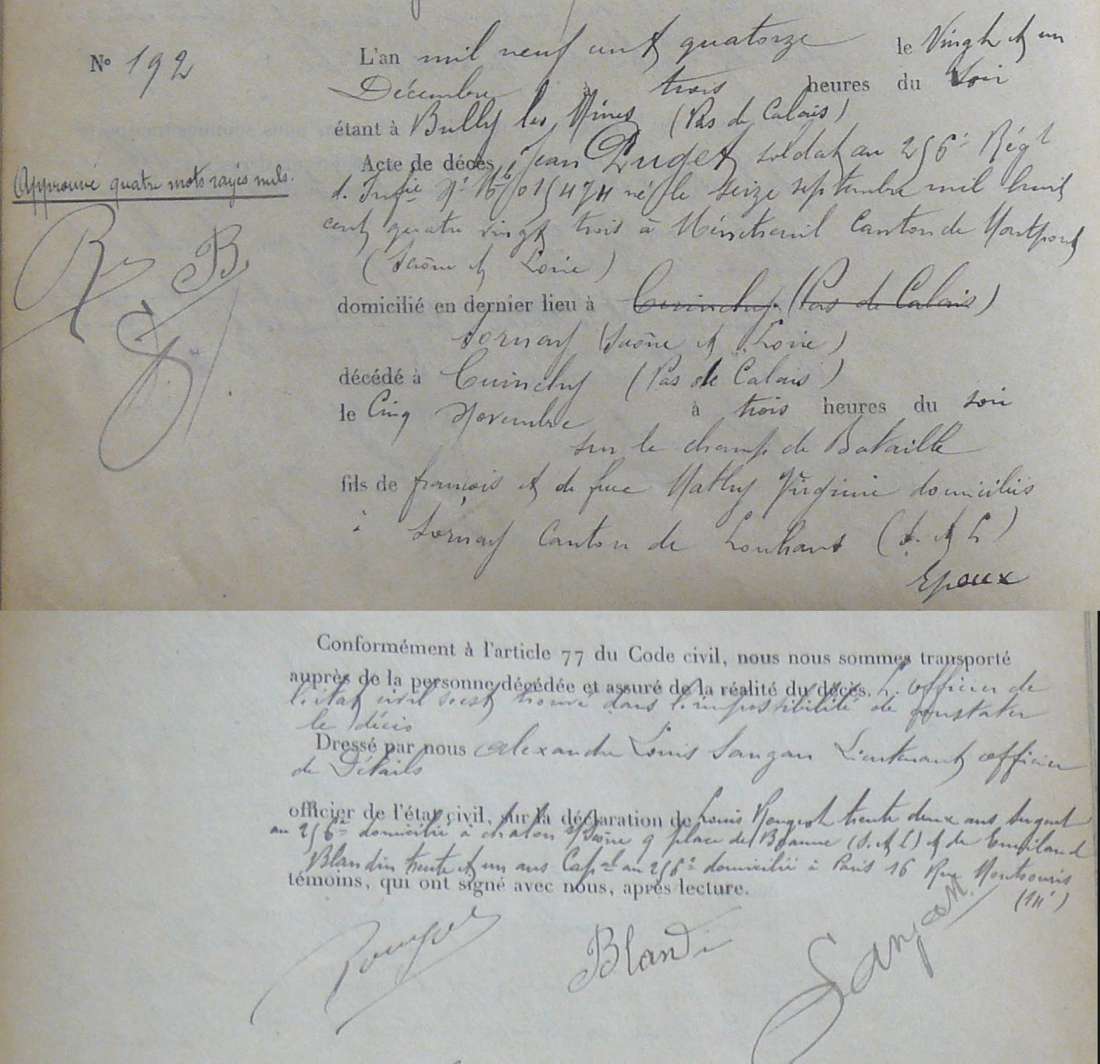 N° 192
L'an mil neuf cent quatorze le Vingt et un
Décembre à trois heures du Soir
étant à Bully les Mines (Pas de Calais)
Acte de décès, Jean Puget soldat au 256e Régt
d'Infie né le seize septembre mil huit
Approuvé quatre mots rayés nuls.
cent quatre vingt trois à Ménetreuil Canton de Montpont
(Saône et Loire)
domicilié en dernier lieu à Cuinchy (Pas de Calais)
Sornay (Saône et Loire)
décédé à Cuinchy (Pas de Calais)
le Cinq Novembre à trois heures du soir
sur le champ de Bataille
fils de françois et de feue Mathy Virginie domiciliés
à Sornay Canton de Louhans (S. et L)
Epoux
Conformément à l'article 77 du Code civil, nous nous sommes transporté
auprès de la personne décédée et assuré de la réalité du décès. L'officier de
l'état civil s'est trouvé dans l'impossibilité de constater
le décès
Dressé par nous Alexandre Louis Sangan Lieutenant officier
de Détails
officier de l'état civil, sur la déclaration de Louis Rougeot trente deux ans sergent
au 256e domicilié à chalon s/Saône 9 place de Beaune (S. et L) et de Emiland
Blandin trente et un ans Capal au 256e domicilié à Paris 16 Rue Montsouris
témoins, qui ont signé avec nous, après lecture. (14e)
Rougeot Blandin Sangan